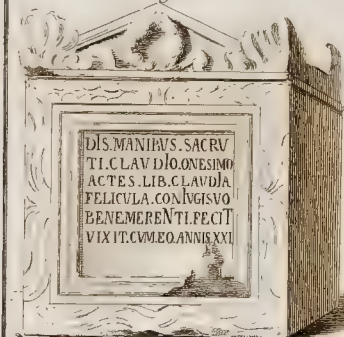 DIS.MANIBVS.SACRV
TI.CLAVDIO.ONESIMO
ACTES.LIB.CLAVDIA
FELICVLA.CONIVGISVO
BENEMERENTI.FECIT
VIXIT.CVM.EO.ANNIS.XXI